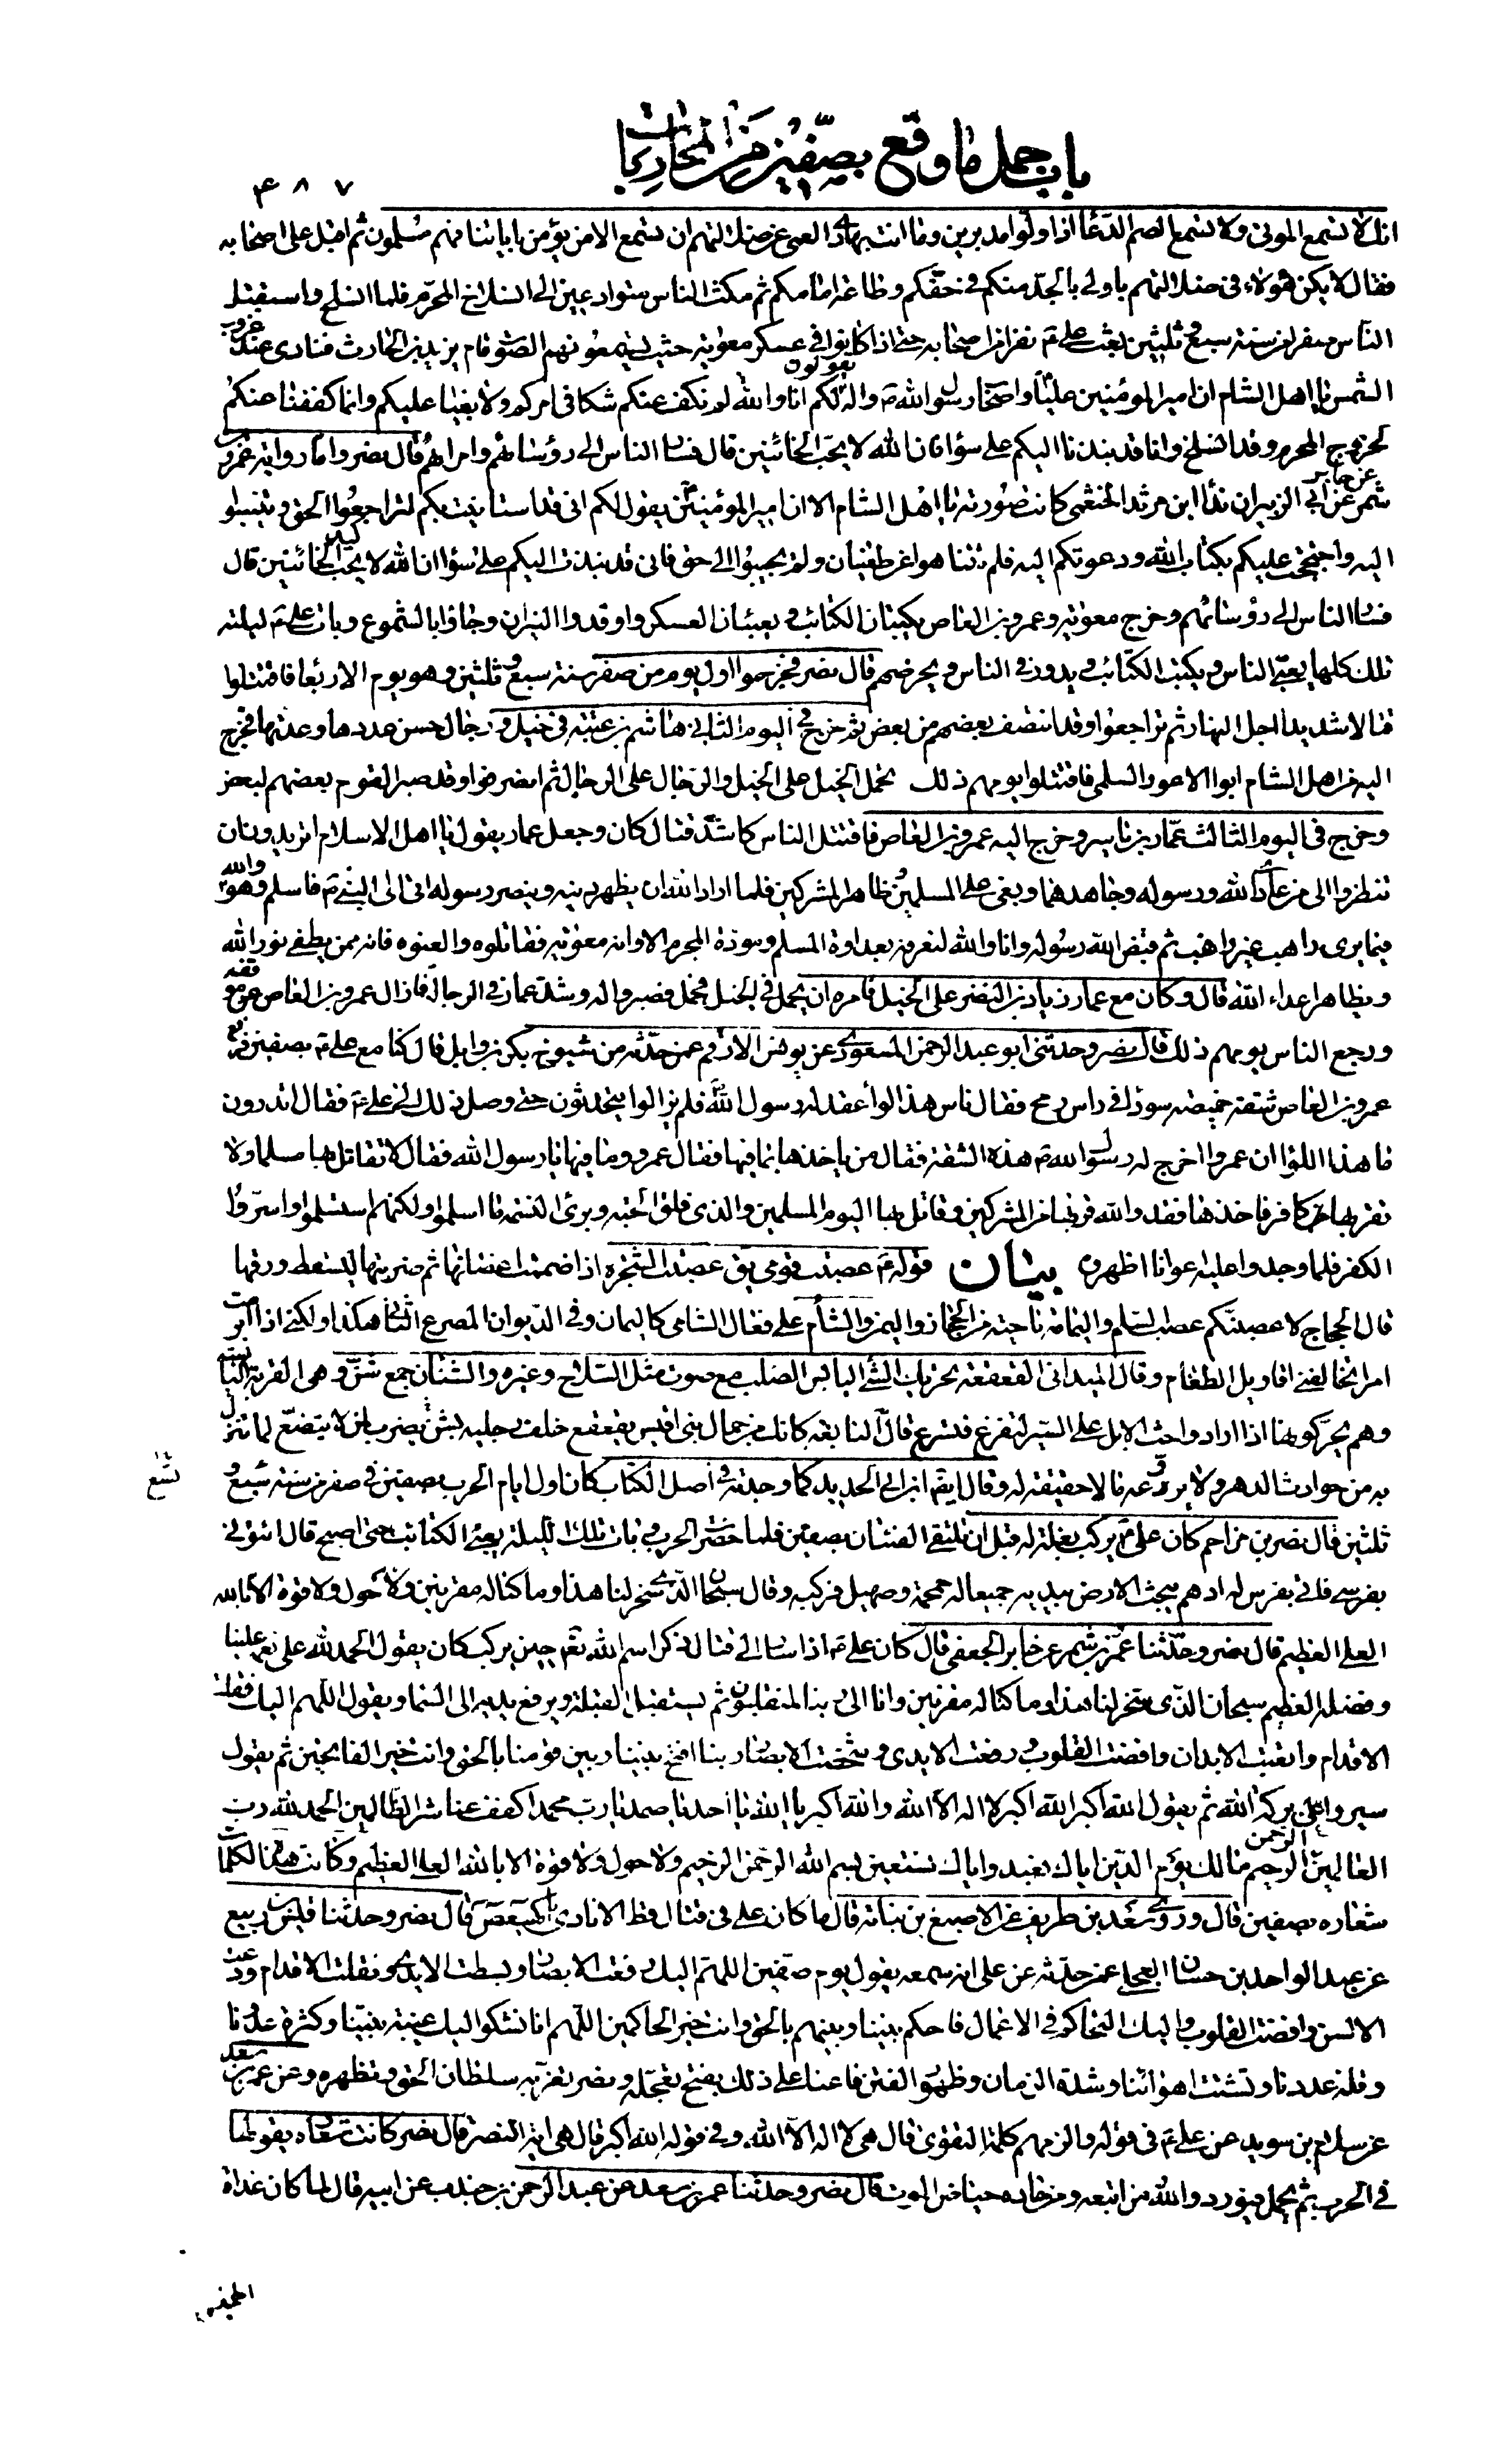 باب جمل ما وقع بصفين من المحاربات
۴۸۷
انك لا تسمع الموتى ولا تسمع الصم الدعا اذا ولوا مدبرين وما انت بهادى العمى عن ضلالتهم ان تسمع الا من يؤمن باياتنا فهم مسلمون ثم اقبل على اصحابه
فقال لا يكن هؤلاء فى ضلالتهم باولى بالجد منكم فى حقكم وطاعة امامكم ثم مكث الناس متوادعين الى انسلاخ المحرم فلما انسلخ واستقبل
الناس صفر من سنة سبع وثلثين بعث على ع نفرا من اصحابه حتى اذا كانوا فى عسكر معوية حيث يسمعونهم الصوت قام يزيد بن الحارث فنادى عند غروب
الشمس يا اهل الشام ان امير المؤمنين عليا واصحاب رسول الله ص يقولون لكم انا والله لم نكف عنكم شكا فى امركم ولا بقيا عليكم وانما كففنا عنكم
لخروج المحرم وقد انسلخ وانا قد نبذنا اليكم على سواء ان الله لا يحب الخائنين قال فسار الناس الى رؤسائهم وامرائهم قال نصر واما رواية عمرو بن
شمر عن جابر عن ابى الزبير ان نداء ابن مرثد الخثعمى كانت صورته يا اهل الشام الا ان امير المؤمنين يقول لكم انى قد استانيت بكم لتراجعوا الحق وتنيبوا
اليه واحتججت عليكم بكتاب الله ودعوتكم اليه فلم تتناهوا عن طغيان ولم تجيبوا الى حق فانى قد نبذت اليكم على سواء ان الله لا يحب كيد الخائنين قال
فسار الناس الى رؤسائهم وخرج معوية وعمرو بن العاص يكتبان الكتائب ويعبئان العسكر واوقدوا النيران وجاؤا بالشموع وبات على ع ليلته
تلك كلها يعبى الناس ويكتب الكتائب ويدور فى الناس ويحرضهم قال نصر فخرجوا اول يوم من صفر سنة سبع وثلثين وهو يوم الاربعا فاقتتلوا
قتالا شديدا جل النهار ثم تراجعوا وقد انتصف بعضهم من بعض ثم خرج فى اليوم الثانى هاشم بن عتبة فى خيل ورجال حسن عددها وعدتها فخرج
اليه من اهل الشام ابو الاعور السلمى فاقتتلوا يومهم ذلك تحمل الخيل على الخيل والرجال على الرجال ثم انصرفوا وقد صبر القوم بعضهم لبعض
وخرج فى اليوم الثالث عمار بن ياسر وخرج اليه عمرو بن العاص فاقتتل الناس كاشد قتال كان وجعل عمار يقول يا اهل الاسلام اتريدون ان
تنظروا الى من عادى الله ورسوله وجاهدهما وبغى على المسلمين وظاهر المشركين فلما اراد الله ان يظهر دينه وينصر رسوله اتى الى النبى ص فاسلم وهو والله
فيما يرى راهب غير راغب ثم قبض الله رسوله وانا والله لنعرفه بعداوة المسلم ومودة المجرم الا وانه معوية فقاتلوه والعنوه فانه ممن يطفى نور الله
ويظاهر اعداء الله قال وكان مع عمار زياد بن النضر على الخيل فامره ان يحمل فى الخيل فحمل فصبروا له وشد عمار فى الرجالة فازال عمرو بن العاص عن موقفه
ورجع الناس يومهم ذلك قال نصر وحدثنى ابو عبد الرحمن المسعودى عن يونس الارقم عمن حدثه من شيوخ بكر بن وايل قال كنا مع على ع بصفين فرفع
عمرو بن العاص شقة خميصة سودا فى راس رمح فقال ناس هذا لواء عقده له رسول الله ص فلم يزالوا يتحدثون حتى وصل ذلك الى على ع فقال اتدرون
ما هذا اللوا ان عمروا اخرج له رسول الله ص هذه الشقة فقال من ياخذها بما فيها فقال عمرو وما فيها يا رسول الله فقال لا تقاتل بها مسلما ولا
تقربها من كافر فاخذها فقد والله قربها من المشركين وقاتل بها اليوم المسلمين والذى فلق الحبة وبرئ النسمة ما اسلموا ولكنهم استسلموا واسروا
الكفر فلما وجدوا عليه اعوانا اظهروه بيان قوله ع عصبت قومى يق عصبت الشجرة اذا ضممت اغصانها ثم ضربتها ليسقط ورقها
قال الحجاج لاعصبنكم عصب السلم واليمامة ناحية من الحجاز واليمن والشام على فعال الشامى كاليمان وفى الديوان المصرع الثانى هكذا ولكنى اذا ابرمت
امرا تخالفنى اقاويل الطغام وقال الميدانى القعقعة تحريك الشئ اليابس الصلب مع صوت مثل السلاح وغيره والشنان جمع شن وهى القربة اليابسة
وهم يحركونها اذا ارادوا حث الابل على السير لتفزع فتسرع قال النابغة كانك من جمال بنى اقيس يقعقع خلف رجليه بشن يضرب لمن لا يتضع لما تنزل
به من حوادث الدهر ولا يروعه ما لا حقيقة له وقال ايضا ابن ابى الحديد كما وجدته فى اصل الكتاب كان اول ايام الحرب بصفين فى صفر من سنة سبع و
تسع
ثلثين قال نصر بن مزاحم كان على ع يركب بغلة له قبل ان تلتقى الفئتان بصفين فلما حضر الحرب وبات تلك الليلة يعبئ الكتائب حتى اصبح قال ائتونى
بفرسى فاتى بفرس له ادهم يبحث الارض بيديه جميعا له حمحمة وصهيل فركبه وقال سبحان الذى سخر لنا هذا وما كنا له مقرنين ولا حول ولا قوة الا بالله
العلى العظيم قال نصر وحدثنا عمرو بن شمر عن جابر الجعفى قال كان على ع اذا سار الى قتال ذكر اسم الله تعم حين يركب كان يقول الحمد لله على نعمه علينا
وفضله العظيم سبحان الذى سخر لنا هذا وما كنا له مقرنين وانا الى ربنا لمنقلبون ثم يستقبل القبلة ويرفع يديه الى السما ويقول اللهم اليك نقلت
الاقدام واتعبت الابدان وافضت القلوب ورفعت الايدى وشخصت الابصار ربنا افتح بيننا وبين قومنا بالحق وانت خير الفاتحين ثم يقول
سيروا على بركة الله ثم يقول الله اكبر الله اكبر لا اله الا الله والله اكبر يا الله يا احد يا صمد يا رب محمد اكفف عنا شر الظالمين الحمد لله رب
العالمين الرحمن الرحيم مالك يوم الدين اياك نعبد واياك نستعين بسم الله الرحمن الرحيم ولا حول ولا قوة الا بالله العلى العظيم وكانت هذه الكلمات
شعاره بصفين قال وروى سعد بن طريف عن الاصبغ بن نباتة قال ما كان على فى قتال قط الا نادى يا كهيعص قال نصر وحدثنا قيس بن ربيع
عن عبد الواحد بن حسان العجلى عمن حدثه عن على انه سمعه يقول يوم صفين اللهم اليك رفعت الابصار وبسطت الايدى ونقلت الاقدام ودعت
الالسن وافضت القلوب واليك التحاكم فى الاعمال فاحكم بيننا وبينهم بالحق وانت خير الحاكمين اللهم انا نشكو اليك غيبة نبينا وكثرة عدونا
وقلة عددنا وتشتت اهوائنا وشدة الزمان وظهور الفتن فاعنا على ذلك بفتح تعجله ونصر تعز به سلطان الحق وتظهره وعن عمرو بن سعد
عن سلام بن سويد عن على ع فى قوله والزمهم كلمة التقوى قال هى لا اله الا الله وفى قوله الله اكبر قال هى اية النصر قال نصر كانت شعاره يقولها
فى الحرب ثم يحمل فيورد والله من اتبعه ومن حاده حياض الموت قال نصر وحدثنا عمرو بن سعد عن عبد الرحمن بن جندب عن ابيه قال لما كان غداة
الخميس